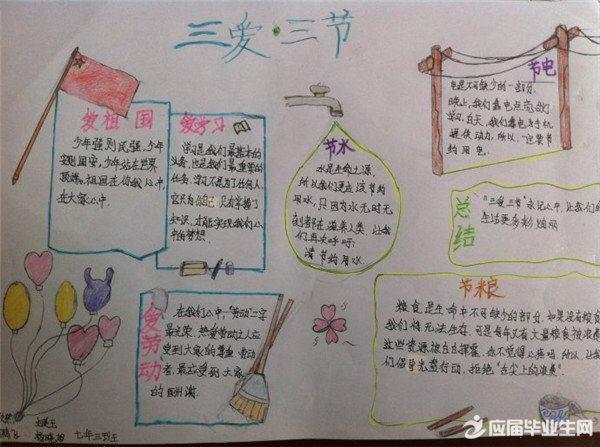 三爱·三节
爱祖国
少年强则民强,少年
强则国强,少年站在世界
顶端。祖国在你我心中,
在大家心中。
爱学习
学习是我们最基本的
业务,也是我们最重要的
任务,学习不是为了任何人,
它只为你自己,只有掌握了
知识,才能实现我们心
中的梦想。
节水
水是生命之源,
所以我们更应该节约
用水,只因为水无时无
刻都在滋养人类,让我
们再次呼吁:
请节约用水
节电
电是不可缺少的一部分,
晚上,我们靠电点亮的灯
学习,白天,我们靠电为手机
提供动力,所以,一定要节
约用电。
总结
“三爱三节”永记心中,让我们的
生活更多彩绚丽
爱劳动
在我们心中,“劳动”二字
最光荣,热爱劳动之人应
受到大家的尊重,劳动
者,最应受到大家
的拥满
节粮
粮食是生命中不可缺少的部分,如果没有粮食
我们将无法生存,可是每年又有大量粮食被浪费
这些资源被白白挥霍,你不觉得心疼吗,所以,让我
们倡导光盘行动,拒绝“舌尖上的浪费”
七年三班
应届毕业生网